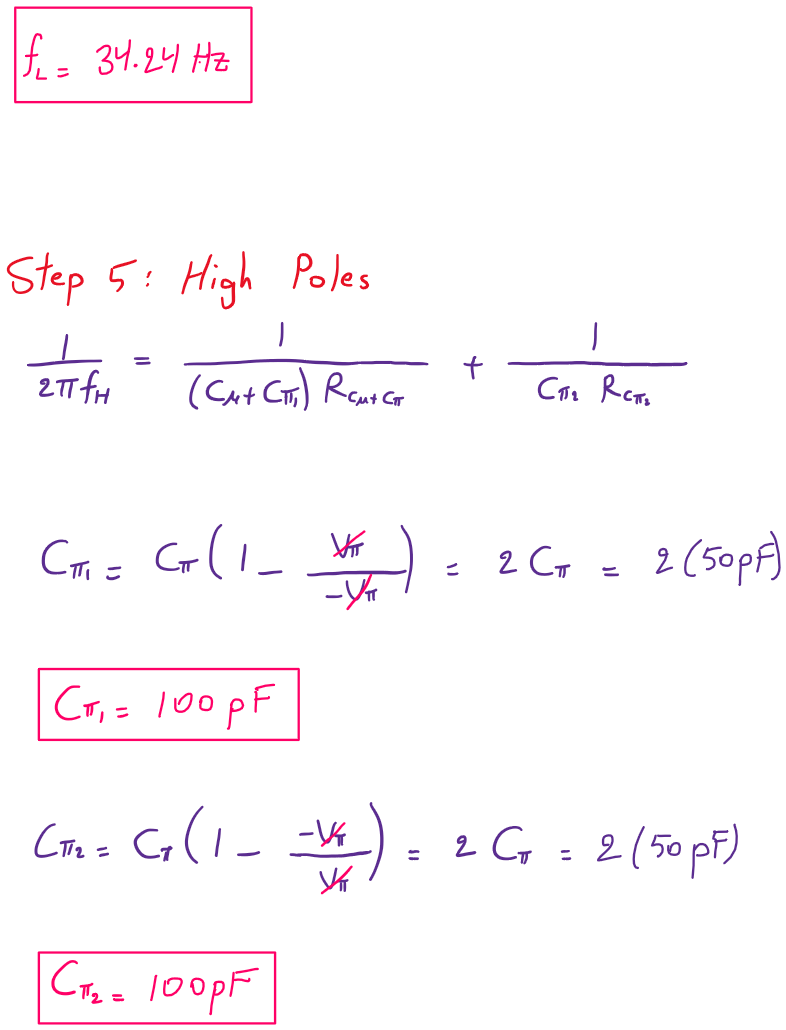 f_L = 34.24 Hz
Step 5: High Poles
1/(2πf_H) = 1/((C_μ + C_π₁) R_Cμ+Cπ) + 1/(C_π₂ R_Cπ₂)
C_π₁ = C_π (1 - V_π/-V_π) = 2 C_π = 2 (50pF)
C_π₁ = 100 pF
C_π₂ = C_π (1 - -V_π/V_π) = 2 C_π = 2 (50 pF)
C_π₂ = 100pF